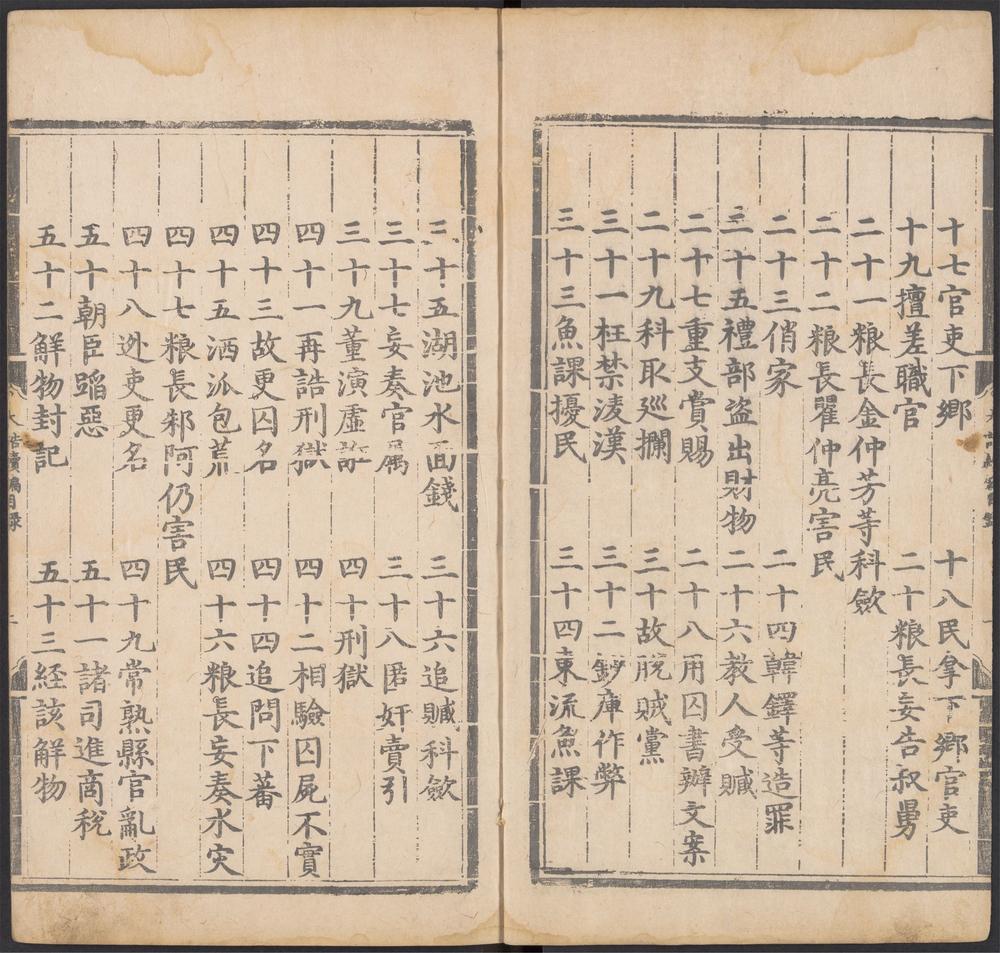 十七官吏下鄉　十八民拿下鄉官吏
十九擅差職官　二十粮長妄告叔舅
二十一粮長金仲芳等科歛
二十二粮長瞿仲亮害民
二十三俏家　二十四韓鐸等造罪
三十五禮部盜出財物　二十六教人受贓
二十七重支賞賜　二十八用囚書辦文案
二十九科取廵攔　三十故脫賊黨
三十一枉禁淩漢　三十二鈔庫作弊
三十三魚課擾民　三十四東流魚課
三十五湖池水面錢　三十六追贓科歛
三十七妄奏官属　三十八匿奸賣引
三十九董演虛誑　四十刑獄
四十一再誥刑獄　四十二相驗囚屍不實
四十三故更囚名　四十四追問下蕃
四十五洒派包荒　四十六粮長妄奏水灾
四十七粮長邾阿仍害民
四十八迯吏更名　四十九常熟縣官亂政
五十朝臣蹈惡　五十一諸司進商稅
五十二解物封記　五十三経該解物
大誥續編目録